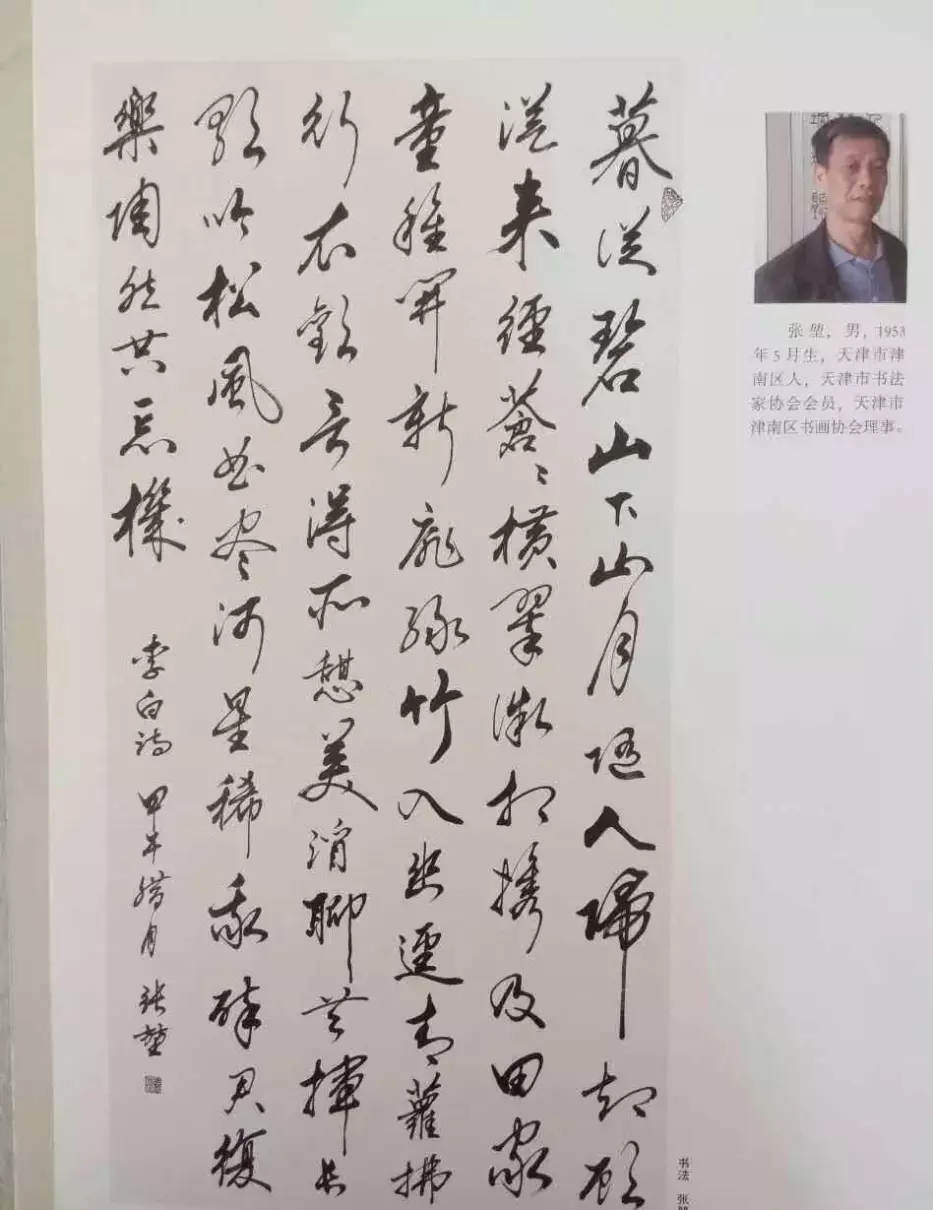 暮從碧山下山月随人歸却顾
從来經蒼々横翠微相携及田家
童稚開新扉緑竹入幽逕青蘿拂
行衣歡言得所憩美酒聊共揮长
歌吟松風曲尽河星稀我醉君復
樂陶然共忘機
李白诗 甲午腊月 张堃
张堃，男，1953
年5月生，天津市津
南区人，天津市书法
家协会会员，天津市
津南区书画协会理事。
书法 张